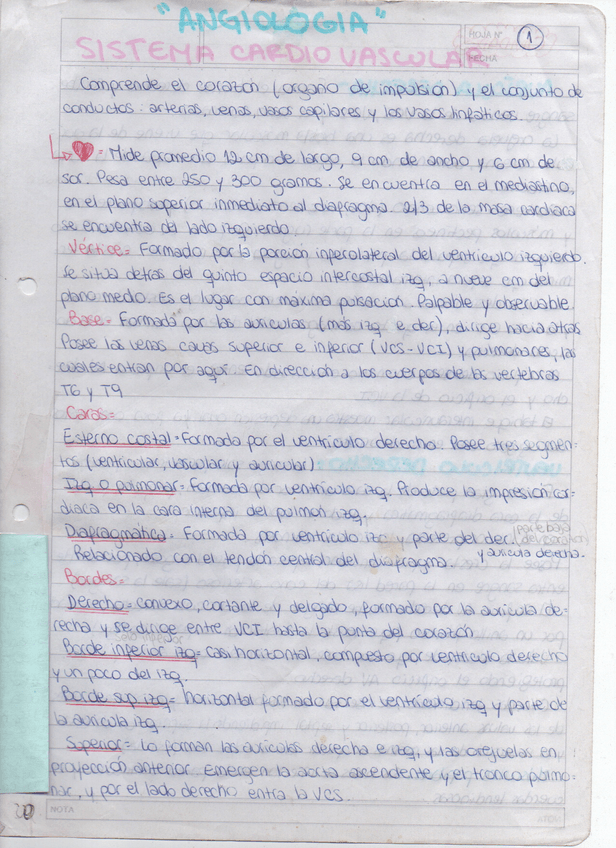 "ANGIOLOGIA"
HOJA N° 1
SISTEMA CARDIO VASCULAR
FECHA
Comprende el corazón (organo de impulsión) y el conjunto de
conductos: arterias, venas, vasos capilares y los vasos linfaticos.
= Mide promedio 12 cm de largo, 9 cm de ancho y 6 cm de
sor. Pesa entre 250 y 300 gramos. Se encuentra en el mediastino,
en el plano superior inmediato al diafragma. 2/3 de la masa cardiaca
se encuentra del lado izquierdo.
Vértice= Formado por la porción inferolateral del ventriculo izquierdo.
Se situa detras del quinto espacio intercostal izq, a nueve cm del
plano medio. Es el lugar con máxima pulsación. Palpable y observable.
Base= Formada por las auriculas (más izq e der), dirige hacia atras
Posee las venas cavas superior e inferior (VCS-VCI) y pulmonares, las
cuales entran por aqui. En dirección a los cuerpos de las vertebras
T6 y T9
Caras=
Esterno costal= Formada por el ventriculo derecho. Posee tres segmen-
tos (ventricular, vascular y auricular)
Izq o pulmonar= Formada por ventriculo izq. Produce la impresion car-
diaca en la cara interna del pulmon izq.
Diafragmatica= Formada por ventriculo izq y parte del der. parte baja
del corazon
y auricula derecha.
Relacionado con el tendón central del diafragma.
Bordes=
Derecho= convexo, cortante y delgado, formado por la auricula de-
recha y se dirige entre VCI hasta la punta del corazón
Borde inferior izq= casi horizontal, compuesto por ventriculo derecho
y un poco del izq.
Borde sup izq= horizontal formado por el ventriculo izq y parte de
la auricula izq.
Superior= Lo forman las auriculas derecha e izq, y las orejuelas en
proyección anterior. Emergen la aorta ascendente y el tronco pulmo-
nar, y por el lado derecho entra la VCS.
NOTA